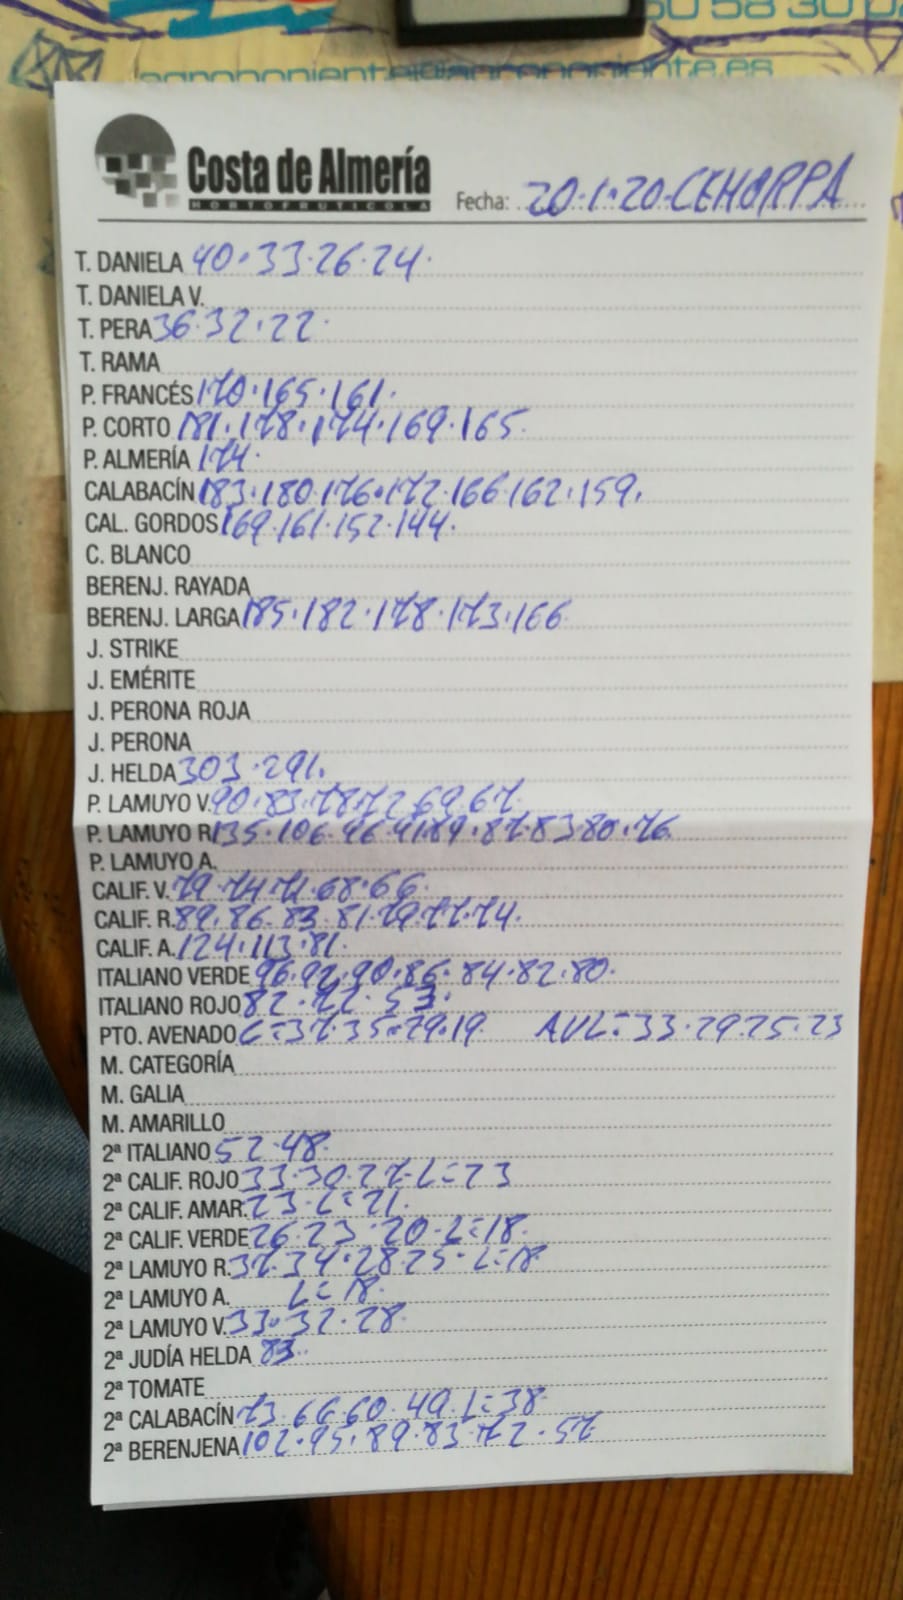 agroponiente@agroponiente.es
Costa de Almería
HORTOFRUTICOLA
Fecha: 20.1.20.CEHORPA
T. DANIELA 40.33.26.24.
T. DANIELA V.
T. PERA 36.32.22.
T. RAMA
P. FRANCÉS 170.165.161.
P. CORTO 181.178.174.169.165.
P. ALMERÍA 174.
CALABACÍN 183.180.176.172.166.162.159.
CAL. GORDOS 169.161.152.144.
C. BLANCO
BERENJ. RAYADA
BERENJ. LARGA 185.182.178.173.166
J. STRIKE
J. EMÉRITE
J. PERONA ROJA
J. PERONA
J. HELDA 303.291.
P. LAMUYO V. 90.83.78.72.69.67.
P. LAMUYO R. 135.106.96.91.89.87.83.80.76.
P. LAMUYO A.
CALIF. V. 79.74.71.68.66.
CALIF. R. 89.86.83.81.79.77.74.
CALIF. A. 124.113.81.
ITALIANO VERDE 96.92.90.86.84.82.80.
ITALIANO ROJO 82.72.53.
PTO. AVENADO C=37.35.29.19. AVL=33.29.25.23
M. CATEGORÍA
M. GALIA
M. AMARILLO
2ª ITALIANO 52.48.
2ª CALIF. ROJO 33.30.27.L=23
2ª CALIF. AMAR. 23.L=21.
2ª CALIF. VERDE 26.23.20.L=18.
2ª LAMUYO R. 37.34.28.25.L=18
2ª LAMUYO A. L=18.
2ª LAMUYO V. 33.32.28.
2ª JUDÍA HELDA 83.
2ª TOMATE
2ª CALABACÍN 73.66.60.49.L=38
2ª BERENJENA 102.95.89.83.72.57